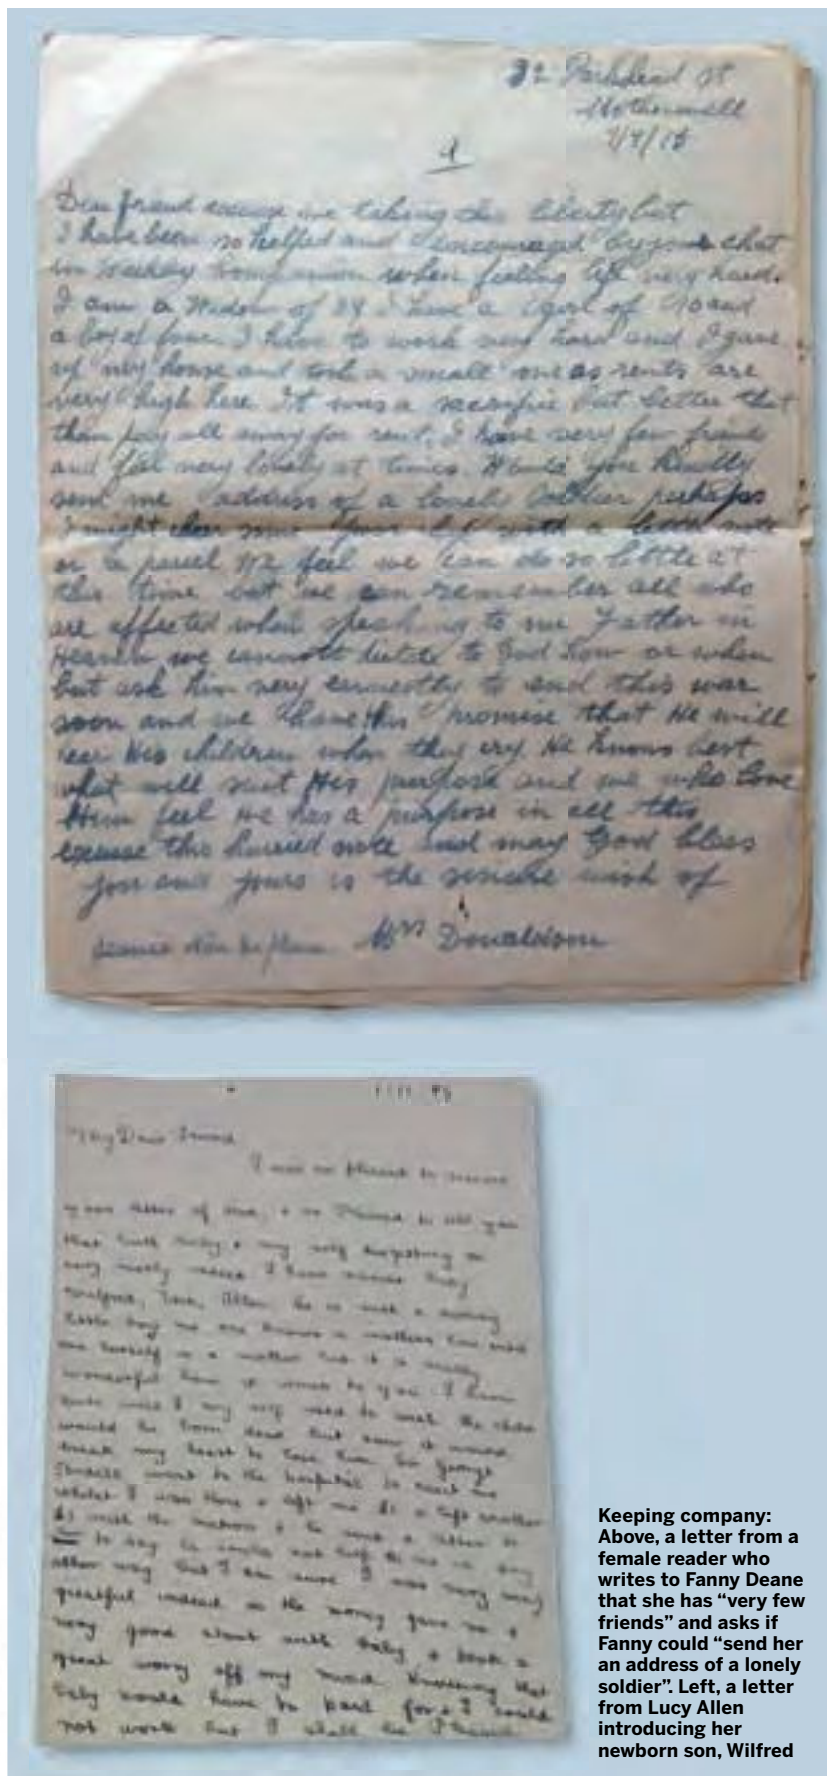 32 Parkhead St
Motherwell
1
Dear friend excuse me taking this liberty but
I have been so helped and encouraged by your chat
in Weekly Companion when feeling life very hard.
I am a Widow of I have a girl of 10 and
a boy of four I have to work very hard and I gave
up my house and took a small one as rents are
very high here It was a sacrifice but better that
than pay all away for rent. I have very few friends
and feel very lonely at times. Would you kindly
send me address of a lonely soldier perhaps
I might cheer some life with a little note
or a parcel We feel we can do so little at
this time but we can remember all who
are affected when speaking to our Father in
Heaven we cannott dictate to God how or when
but ask him very earnestly to end this war
soon and we have His promise that He will
hear His children when they cry. He knows best
what will suit His purpose and we who love
Him feel He has a purpose in all this
excuse this hurried note and may God bless
you and yours is the sincere wish of
Mrs Donaldson
My Dear Friend
I was so pleased to receive
your letter of & so Pleased to tell you
that both Baby & my self
very nicely I have Baby
Wilfred, Allen he is such a
little boy no one knows a mothers love until
one herself is a mother but it is really
wonderful how it comes to you. I know
my self used to wish the child
would be born dead but now it would
break my heart to lose him Sir George
went to the hospital to meet me
whilst I was there & left me £1 & left another
£1 with the matron &
to say he could not help me in any
other way but I am sure I was very very
greatful indeed as the money gave me a
very good start with baby & took a
great worry off my mind knowing that
baby would have to be paid for & I could
not work but I shall be
Keeping company:
Above, a letter from a
female reader who
writes to Fanny Deane
that she has “very few
friends” and asks if
Fanny could “send her
an address of a lonely
soldier”. Left, a letter
from Lucy Allen
introducing her
newborn son, Wilfred